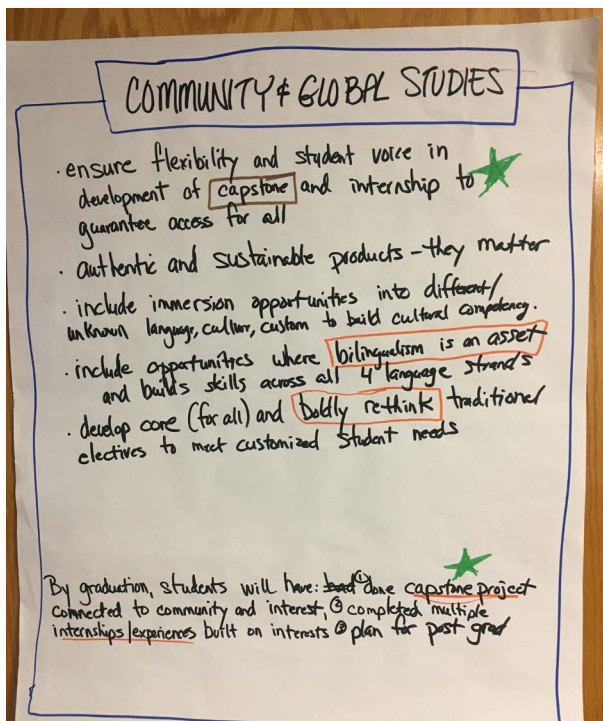 COMMUNITY & GLOBAL STUDIES
· ensure flexibility and student voice in
development of capstone and internship to
guarantee access for all
· authentic and sustainable products - they matter
· include immersion opportunities into different/
unknown language, culture, custom to build cultural competency.
· include opportunities where bilingualism is an asset
and builds skills across all 4 language strands
· develop core (for all) and boldly re-think traditional
electives to meet customized student needs
By graduation, students will have: ① done capstone project
connected to community and interest, ② completed multiple
internships/experiences built on interests ③ plan for post grad